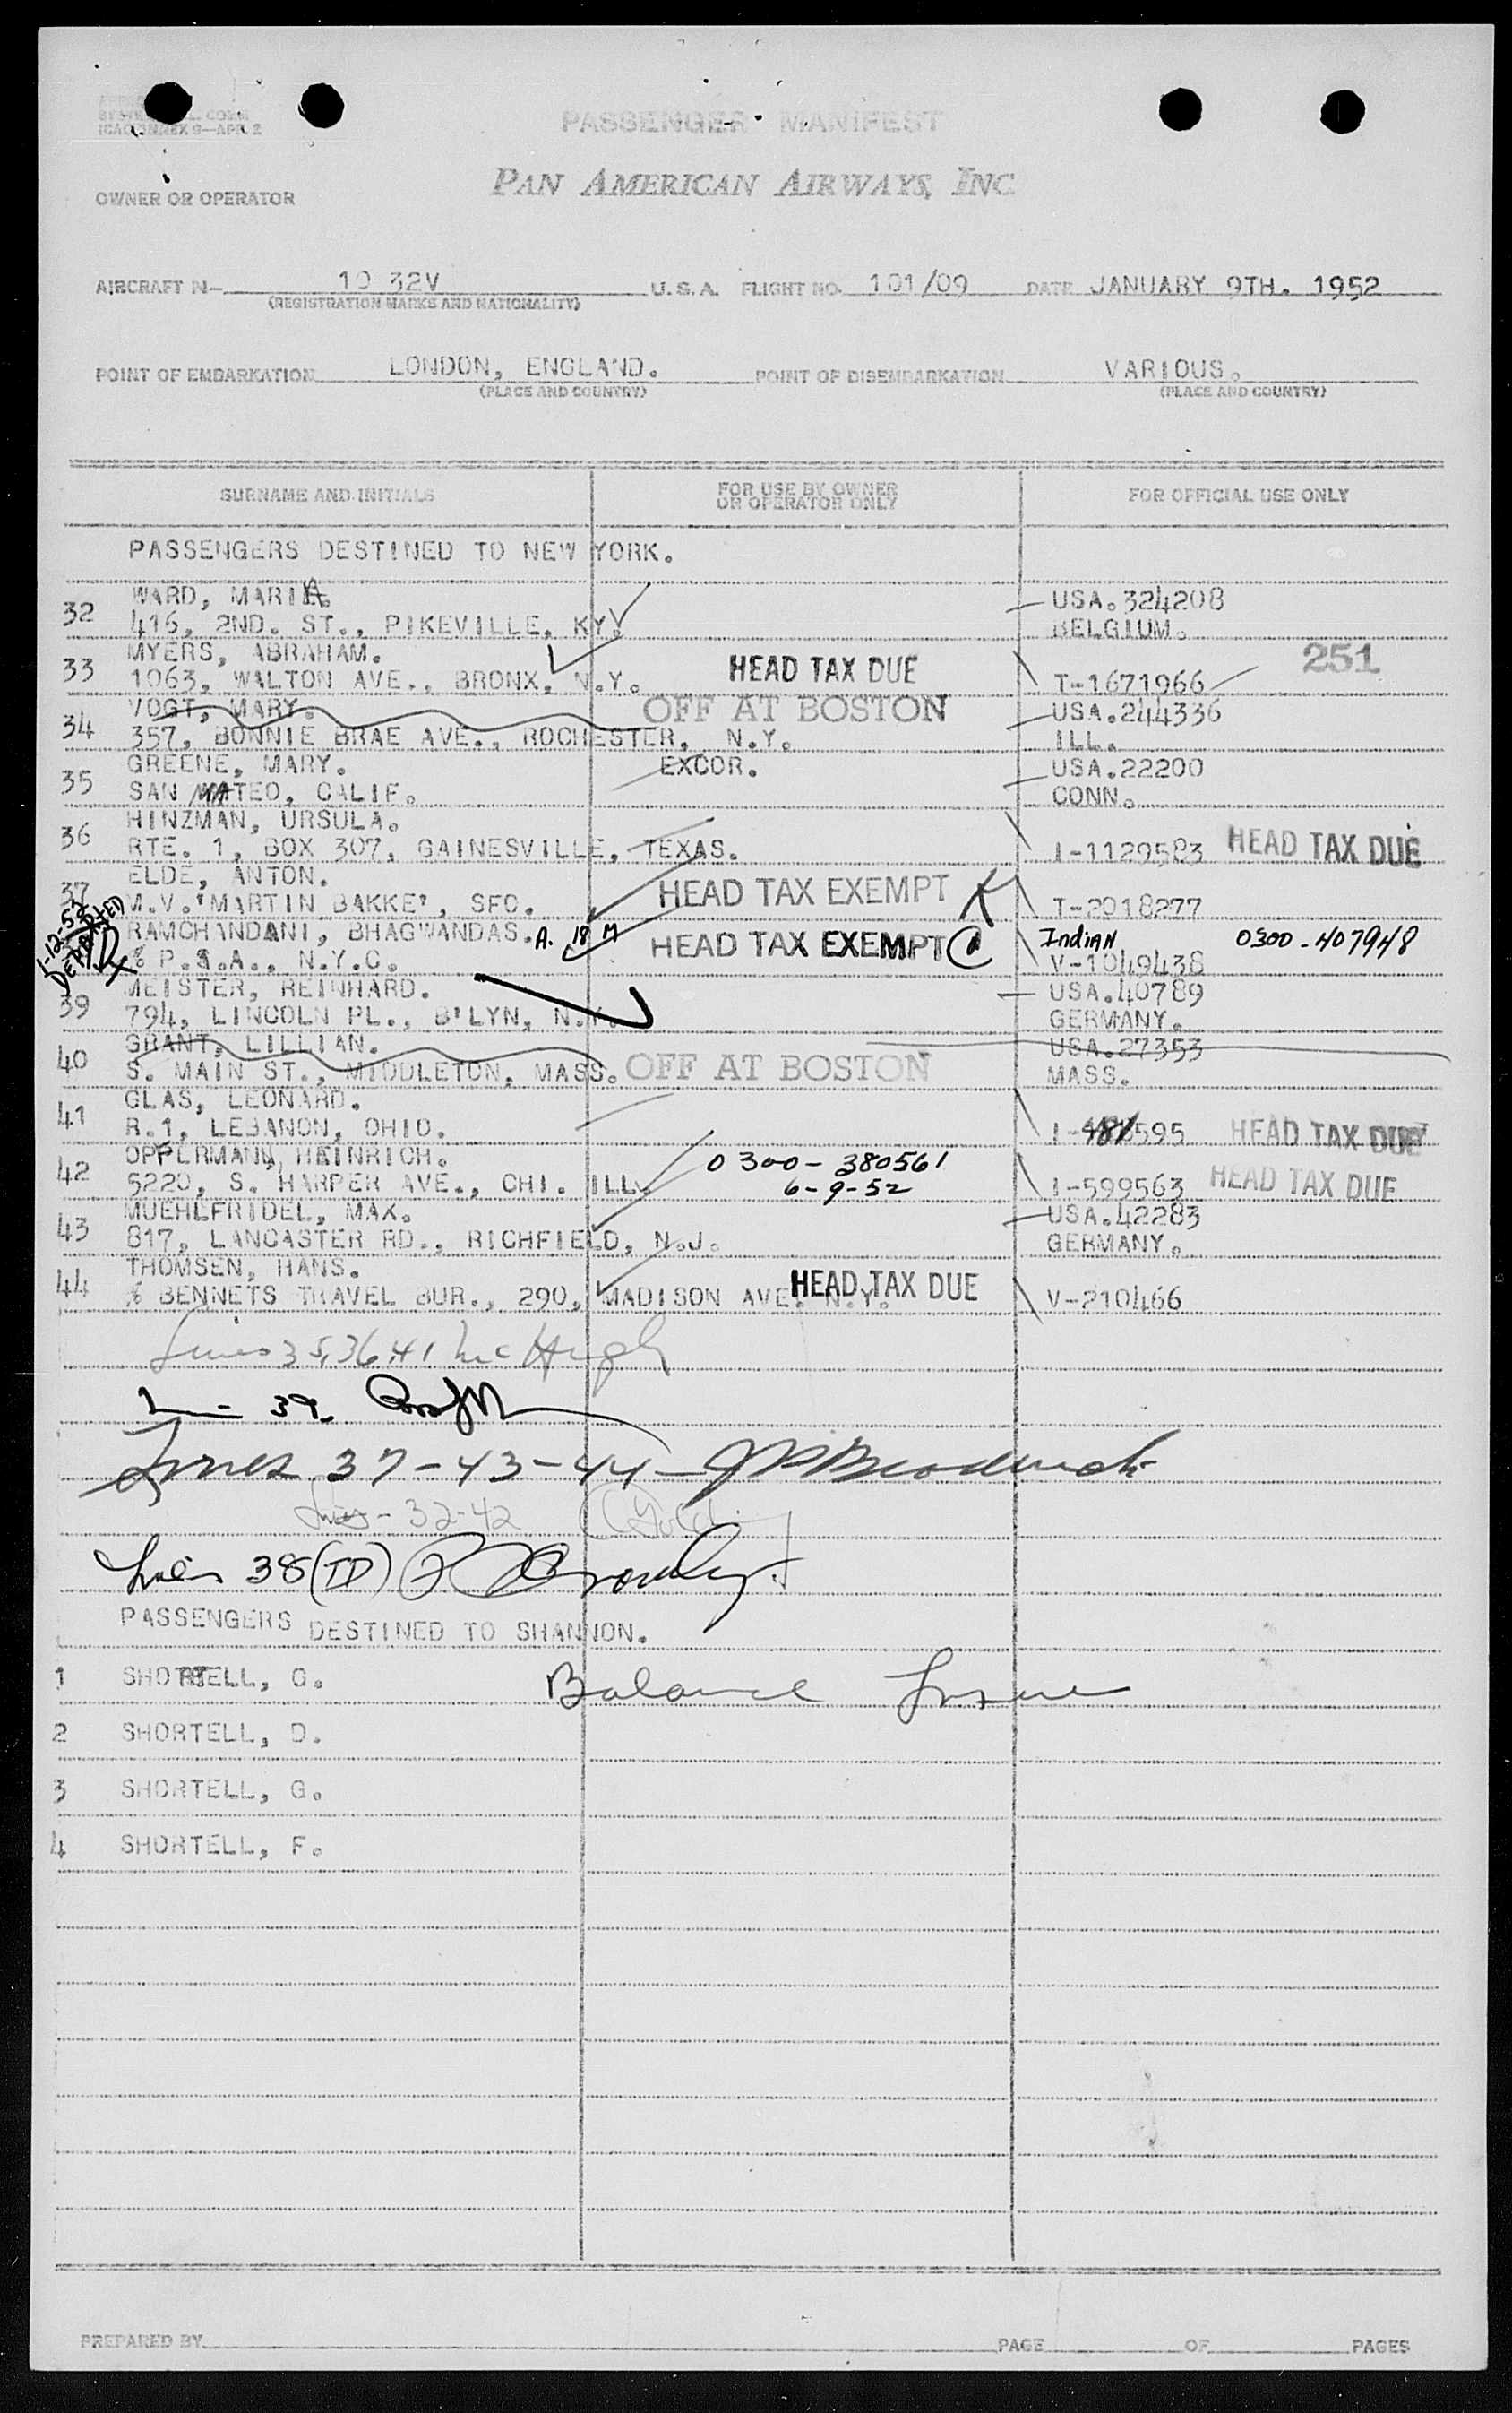 ICAO ANNEX 9—APP. 2
PASSENGER MANIFEST
PAN AMERICAN AIRWAYS, INC.
OWNER OR OPERATOR
AIRCRAFT N— 10 32V U.S.A. FLIGHT NO. 101/09 DATE JANUARY 9TH. 1952
(REGISTRATION MARKS AND NATIONALITY)
POINT OF EMBARKATION LONDON, ENGLAND. POINT OF DISEMBARKATION VARIOUS.
(PLACE AND COUNTRY) (PLACE AND COUNTRY)
SURNAME AND INITIALS FOR USE BY OWNER OR OPERATOR ONLY FOR OFFICIAL USE ONLY
PASSENGERS DESTINED TO NEW YORK.
32 WARD, MARIA. USA.324208
416, 2ND. ST., PIKEVILLE, KY. BELGIUM.
33 MYERS, ABRAHAM. HEAD TAX DUE 251
1063, WALTON AVE., BRONX, N.Y. T-1671966
34 VOGT, MARY. OFF AT BOSTON USA.244336
357, BONNIE BRAE AVE., ROCHESTER, N.Y. ILL.
35 GREENE, MARY. EXCOR. USA.22200
SAN MATEO, CALIF. CONN.
36 HINZMAN, URSULA.
RTE. 1, BOX 307, GAINESVILLE, TEXAS. I-1129583 HEAD TAX DUE
37 ELDE, ANTON. HEAD TAX EXEMPT
M.V.'MARTIN BAKKE', SFO. T-2018277
1-12-53 DEPARTED
RAMCHANDANI, BHAGWANDAS. A. 18 M HEAD TAX EXEMPT C Indian 0300-407948
% P.S.A., N.Y.C. V-1049438
39 MEISTER, REINHARD. USA.40789
794, LINCOLN PL., B'LYN, N.Y. GERMANY.
40 GRANT, LILLIAN. OFF AT BOSTON USA.27353
S. MAIN ST., MIDDLETON, MASS. MASS.
41 GLAS, LEONARD.
R.1, LEBANON, OHIO. HEAD TAX DUE
42 OPPERMANN, HEINRICH. 0300-380561
5220, S. HARPER AVE., CHI. ILL. 6-9-52 I-599563 HEAD TAX DUE
43 MUEHLFRIDEL, MAX. USA.42283
817, LANCASTER RD., RICHFIELD, N.J. GERMANY.
44 THOMSEN, HANS. HEAD TAX DUE
% BENNETS TRAVEL BUR., 290, MADISON AVE. N.Y. V-210466
Lines 35,36,41 McHugh
39
Lines 37-43-44-
Lines - 32-42
Line 38 (TD)
PASSENGERS DESTINED TO SHANNON.
1 SHORTELL, G. Balance
2 SHORTELL, D.
3 SHORTELL, G.
4 SHORTELL, F.
PREPARED BY PAGE OF PAGES